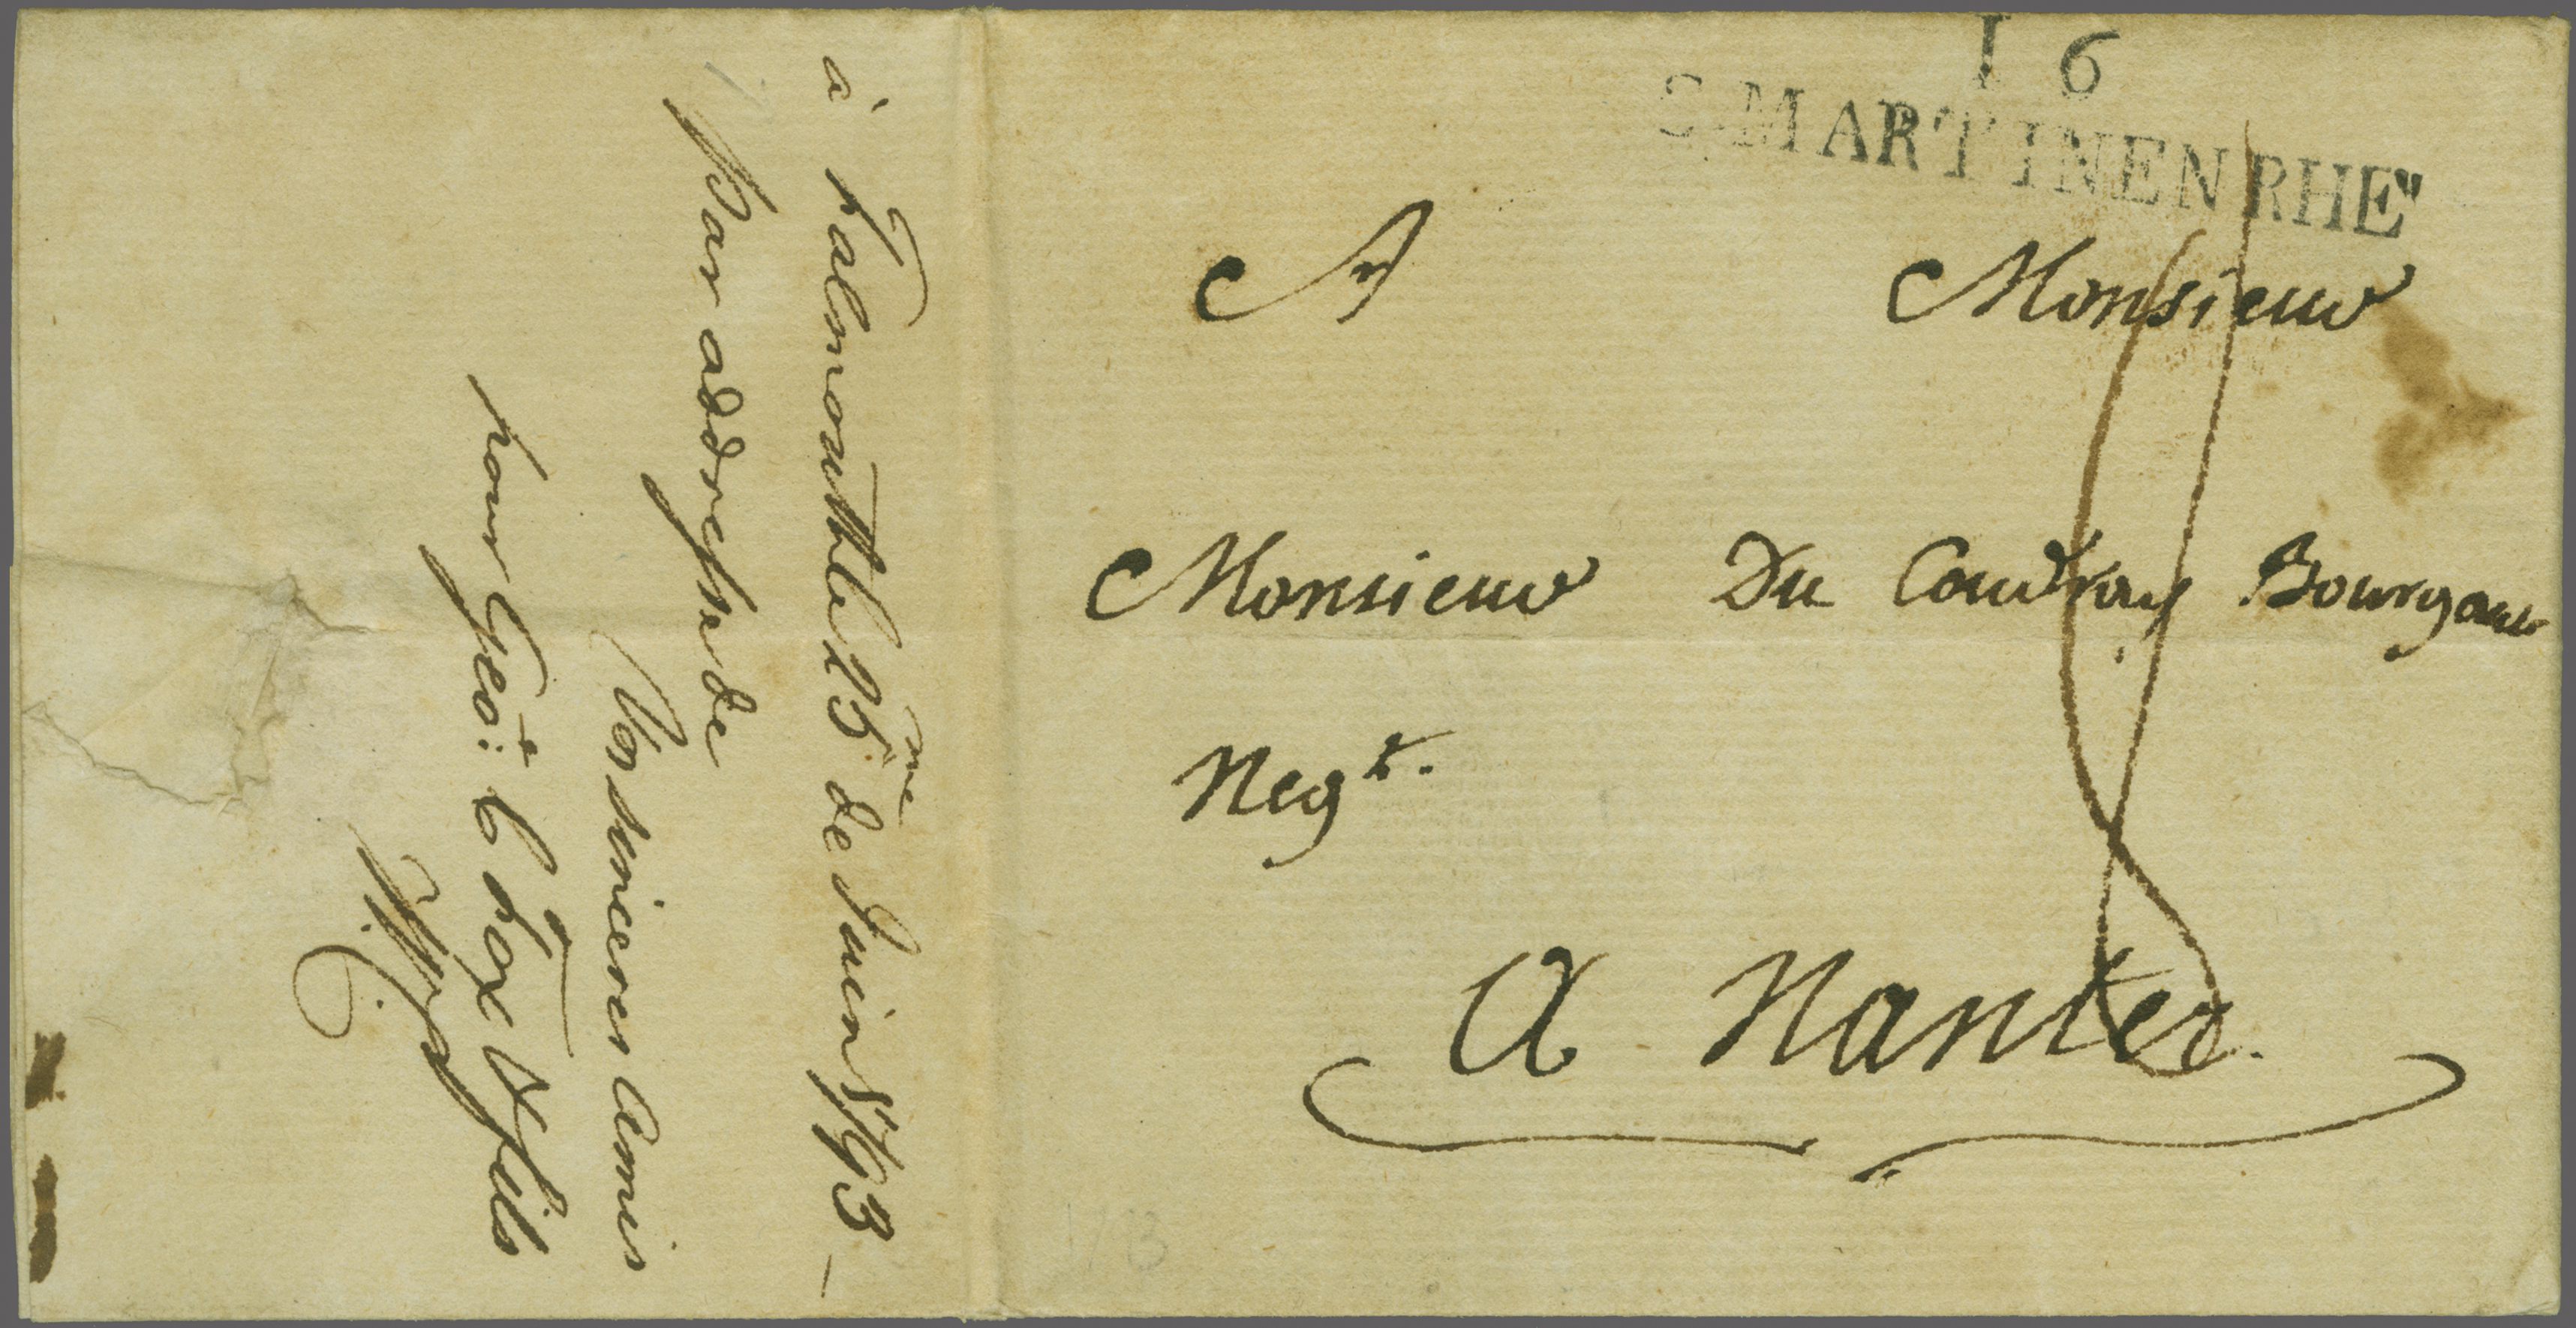 1 6
S. MARTINENRHE"
A Monsieur
Monsieur Du Coudray Bourgaux
Negt.
A Nantes.
à Falmouth le 25me de Juin 1793 –
par addresse de
Vos sinceres Amis
pour Geo: C Fox & fils